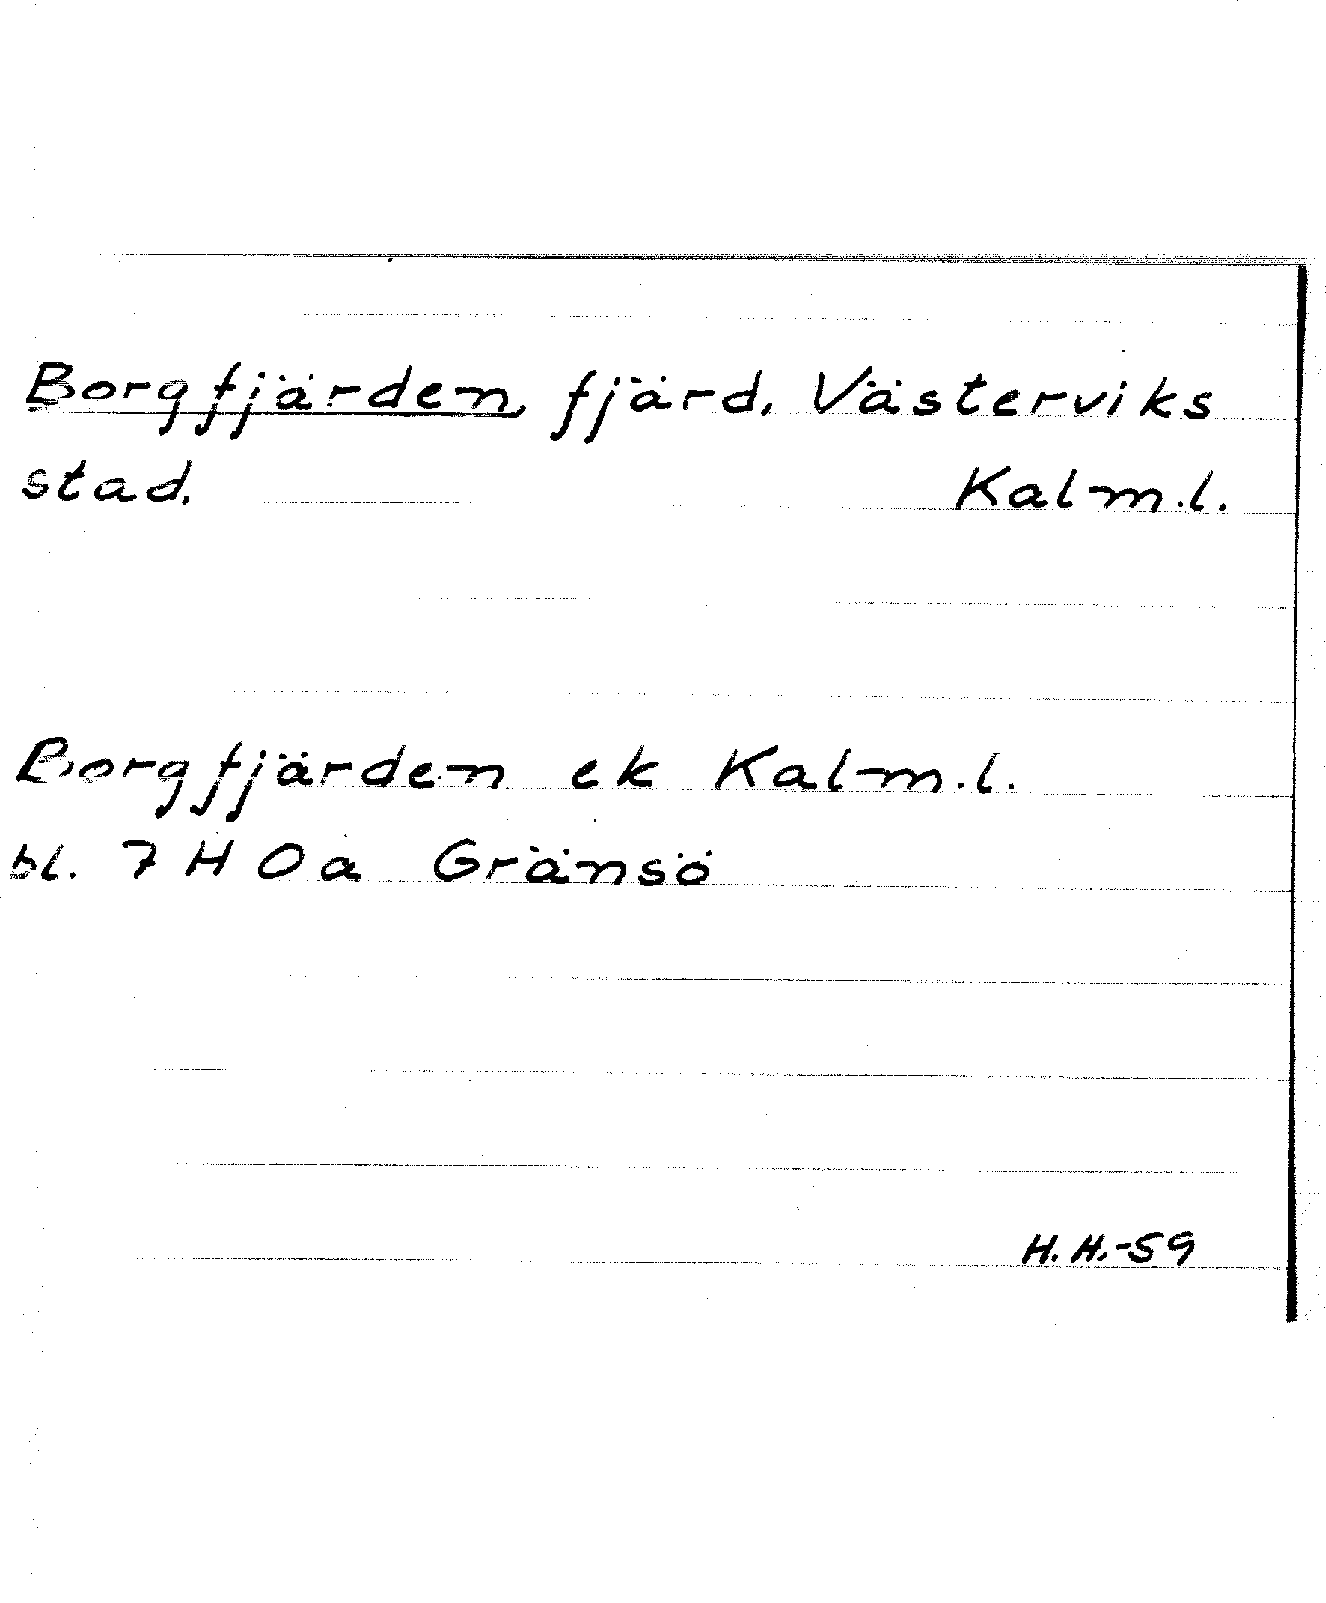 Borgfjärden, fjärd, Västerviks
stad. Kalm.l.
Borgfjärden ek Kalm.l.
bl. 7 H 0 a Gränsö
H.H.-59